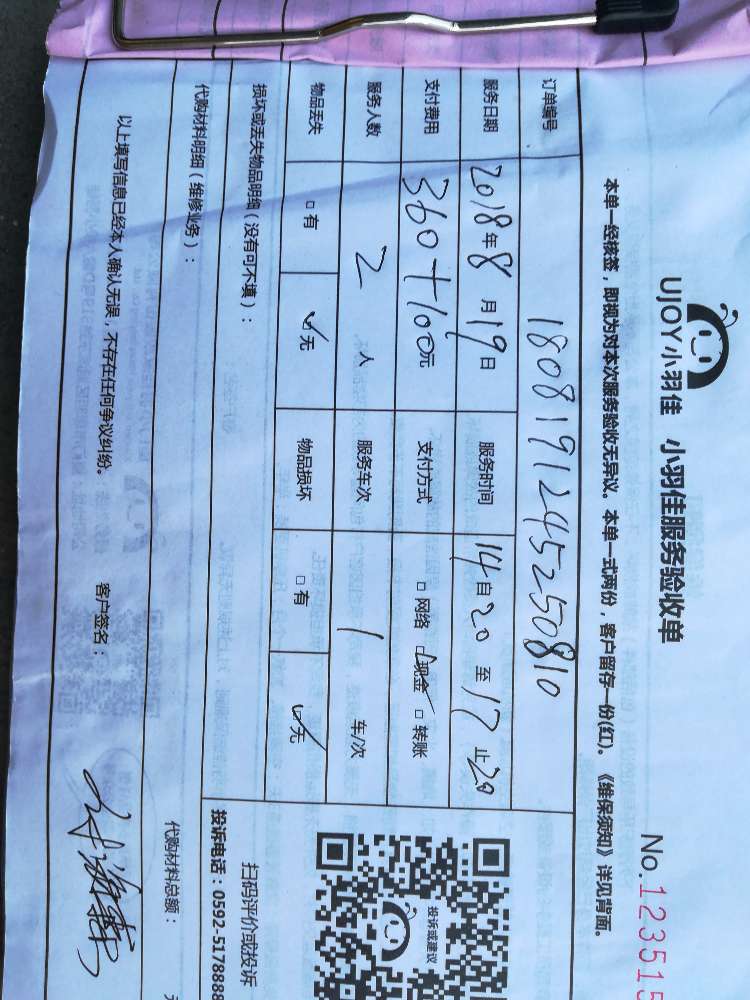 UJOY小羽佳 小羽佳服务验收单
No.123515
本单一经核签，即视为对本次服务验收无异议。本单一式两份，客户留存一份(红)。《维保须知》详见背面。
订单编号 1808191245250810
服务日期 2018年8月19日 服务时间 14自20至17止20
支付费用 360+100元 支付方式 □网络 ☑现金 □转账
服务人数 2人 服务车次 1车/次
物品丢失 □有 ☑无 物品损坏 □有 ☑无
损坏或丢失物品明细（没有可不填）：
投诉或建议
扫码评价或投诉
投诉电话：0592-5178888
代购材料明细（维修业务）：
代购材料总额：
以上填写信息已经本人确认无误，不存在任何争议纠纷。 客户签名：